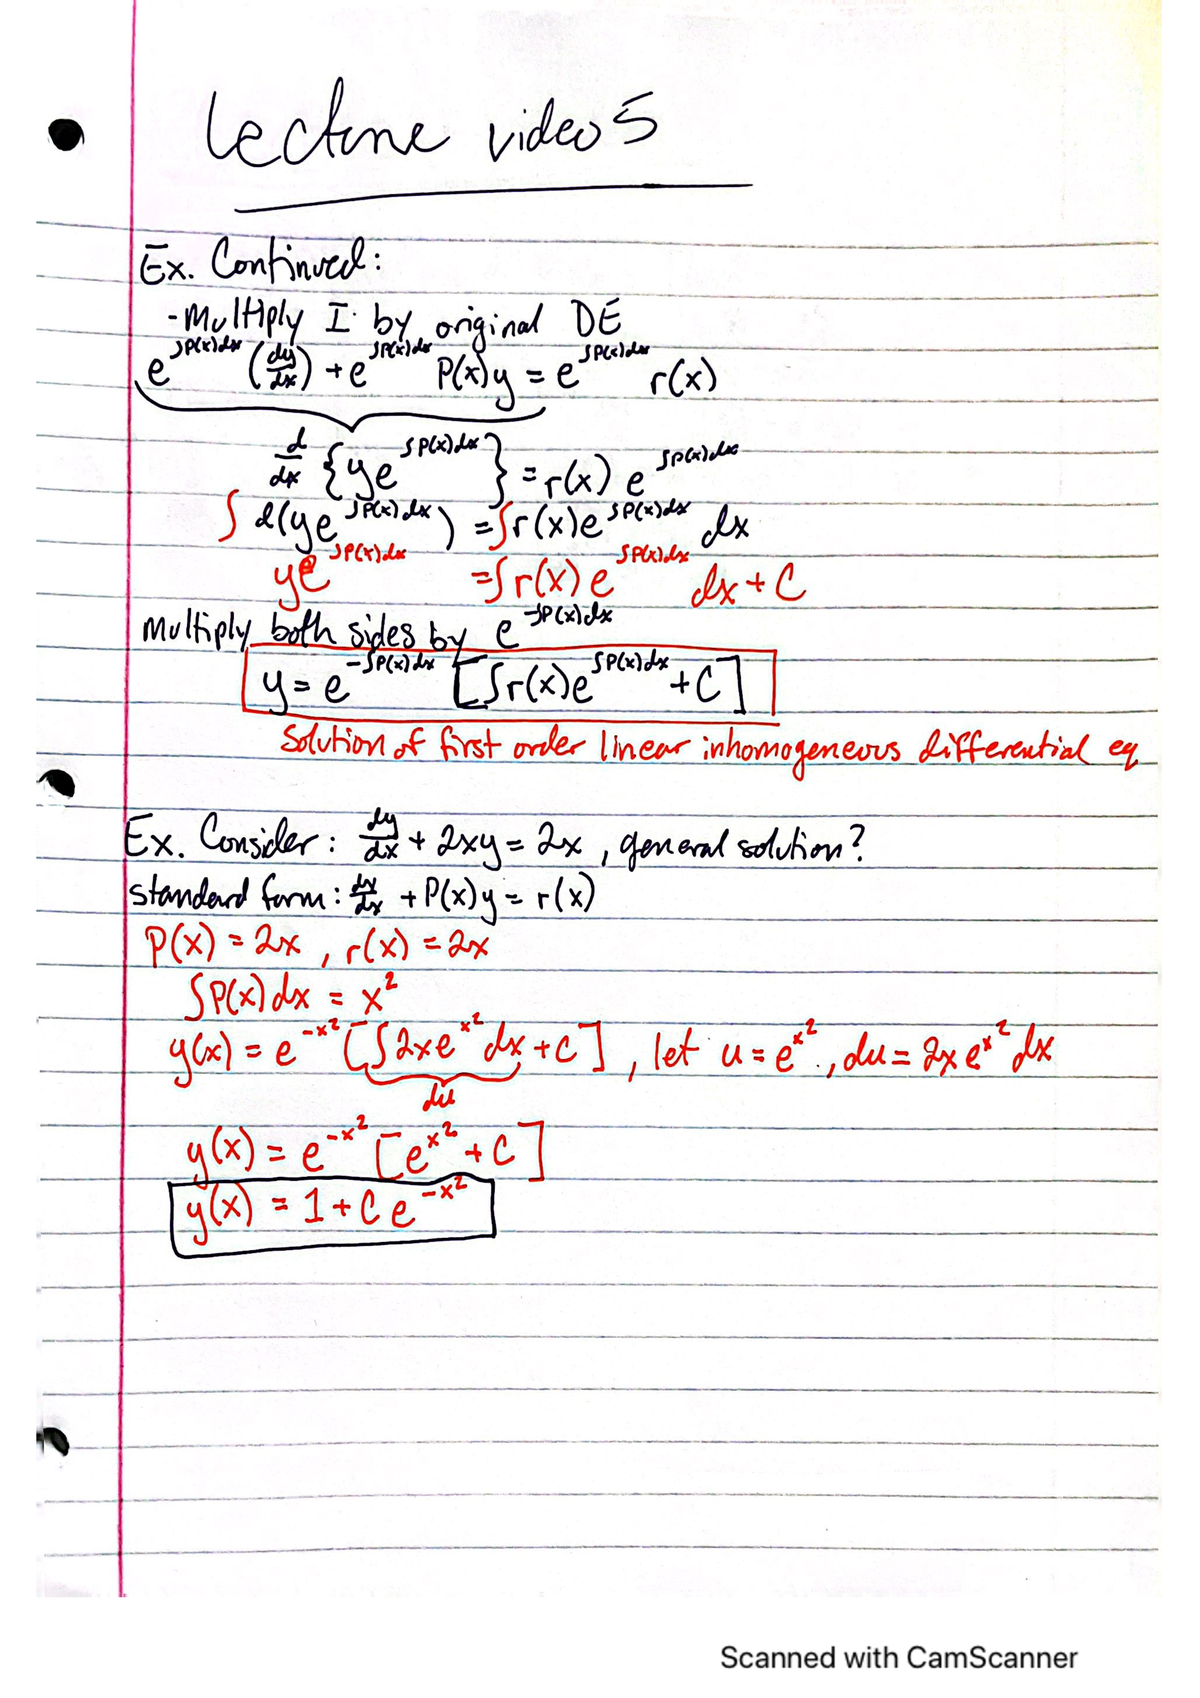 Lecture video 5
Ex. Continued:
- Multiply I by original DE
e^{∫P(x)dx} (dy/dx) + e^{∫P(x)dx} P(x)y = e^{∫P(x)dx} r(x)
d/dx {ye^{∫P(x)dx}} = r(x) e^{∫P(x)dx}
∫ d(ye^{∫P(x)dx}) = ∫r(x)e^{∫P(x)dx} dx
ye^{∫P(x)dx} = ∫r(x)e^{∫P(x)dx} dx + C
Multiply both sides by e^{-∫P(x)dx}
y = e^{-∫P(x)dx} [∫r(x)e^{∫P(x)dx} + C]
Solution of first order linear inhomogeneous differential eq
Ex. Consider: dy/dx + 2xy = 2x, general solution?
standard form: dy/dx + P(x)y = r(x)
P(x) = 2x, r(x) = 2x
∫P(x)dx = x²
y(x) = e^{-x²} [∫2xe^{x²}dx + C], let u = e^{x²}, du = 2xe^{x²}dx
du
y(x) = e^{-x²} [e^{x²} + C]
y(x) = 1 + Ce^{-x²}
Scanned with CamScanner